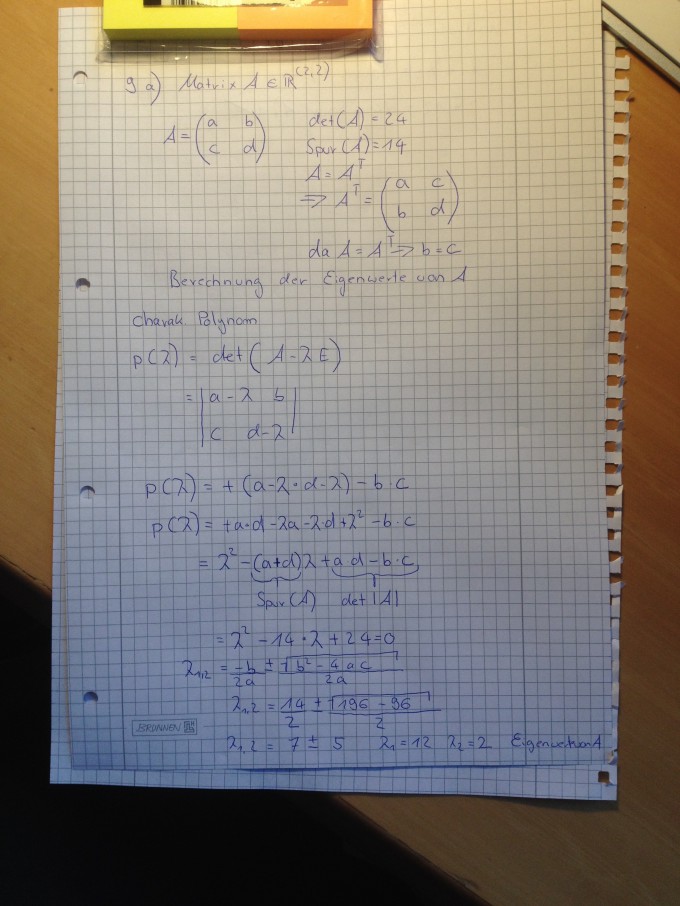 9 a) Matrix A ∈ ℝ^(2,2)
A = (a b; c d) det(A) = 24
Spur(A) = 14
A = A^T
⇒ A^T = (a c; b d)
da A = A^T ⇒ b = c
Berechnung der Eigenwerte von A
Charak. Polynom
p(λ) = det(A - λE)
= |a - λ b; c d - λ|
p(λ) = + (a - λ · d - λ) - b · c
p(λ) = + a · d - λa - λ · d + λ² - b · c
= λ² - (a+d)λ + a d - b · c
Spur(A) det|A|
= λ² - 14 · λ + 24 = 0
λ1,2 = -b/2a ± √(b² - 4ac)/2a
λ1,2 = 14/2 ± √(196 - 96)/2
λ1,2 = 7 ± 5 λ1 = 12 λ2 = 2 Eigenwert von A
BRUNNEN